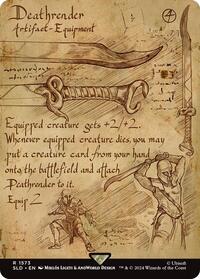 Deathrender
4
Artifact - Equipment
Equipped creature gets +2/+2.
Whenever equipped creature dies, you may
put a creature card from your hand
onto the battlefield and attach
Deathrender to it.
Equip 2
R 1573
SLD • EN MIKLÓS LIGETI & ANOWORLD DESIGN
© Ubisoft
™ & © 2024 Wizards of the Coast